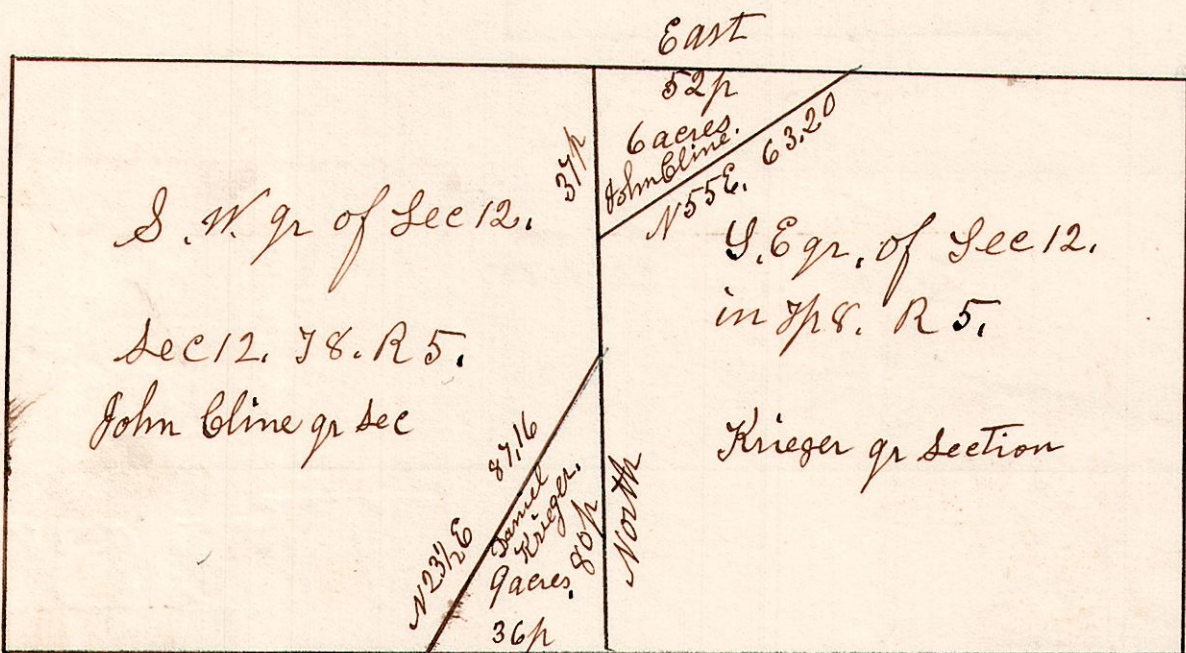 East
52p
6 acres.
John Cline.
N 55 E. 63.20
37p
S. W. qr of Sec 12.
Sec 12. T 8. R 5.
John Cline qr Sec
S. E qr. of Sec 12.
in Tp 8. R 5.
Krieger qr Section
N 23½ E 87.16
Daniel
Krieger.
9 acres.
36p
80p
North